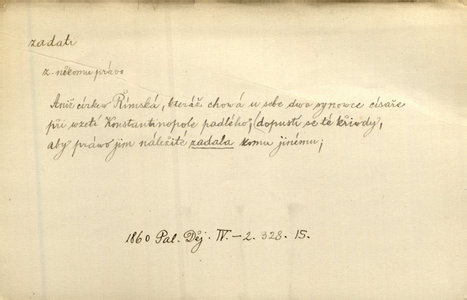 zadati
z. někomu právo
Aniž církev Římská, kteráž chová u sebe dva synovce císaře
při vzetí Konstantinopole padlého, dopustí se té křivdy,
aby právo jim náležité zadala komu jinému;
1860 Pal. Děj. IV.-2. 328. 15.